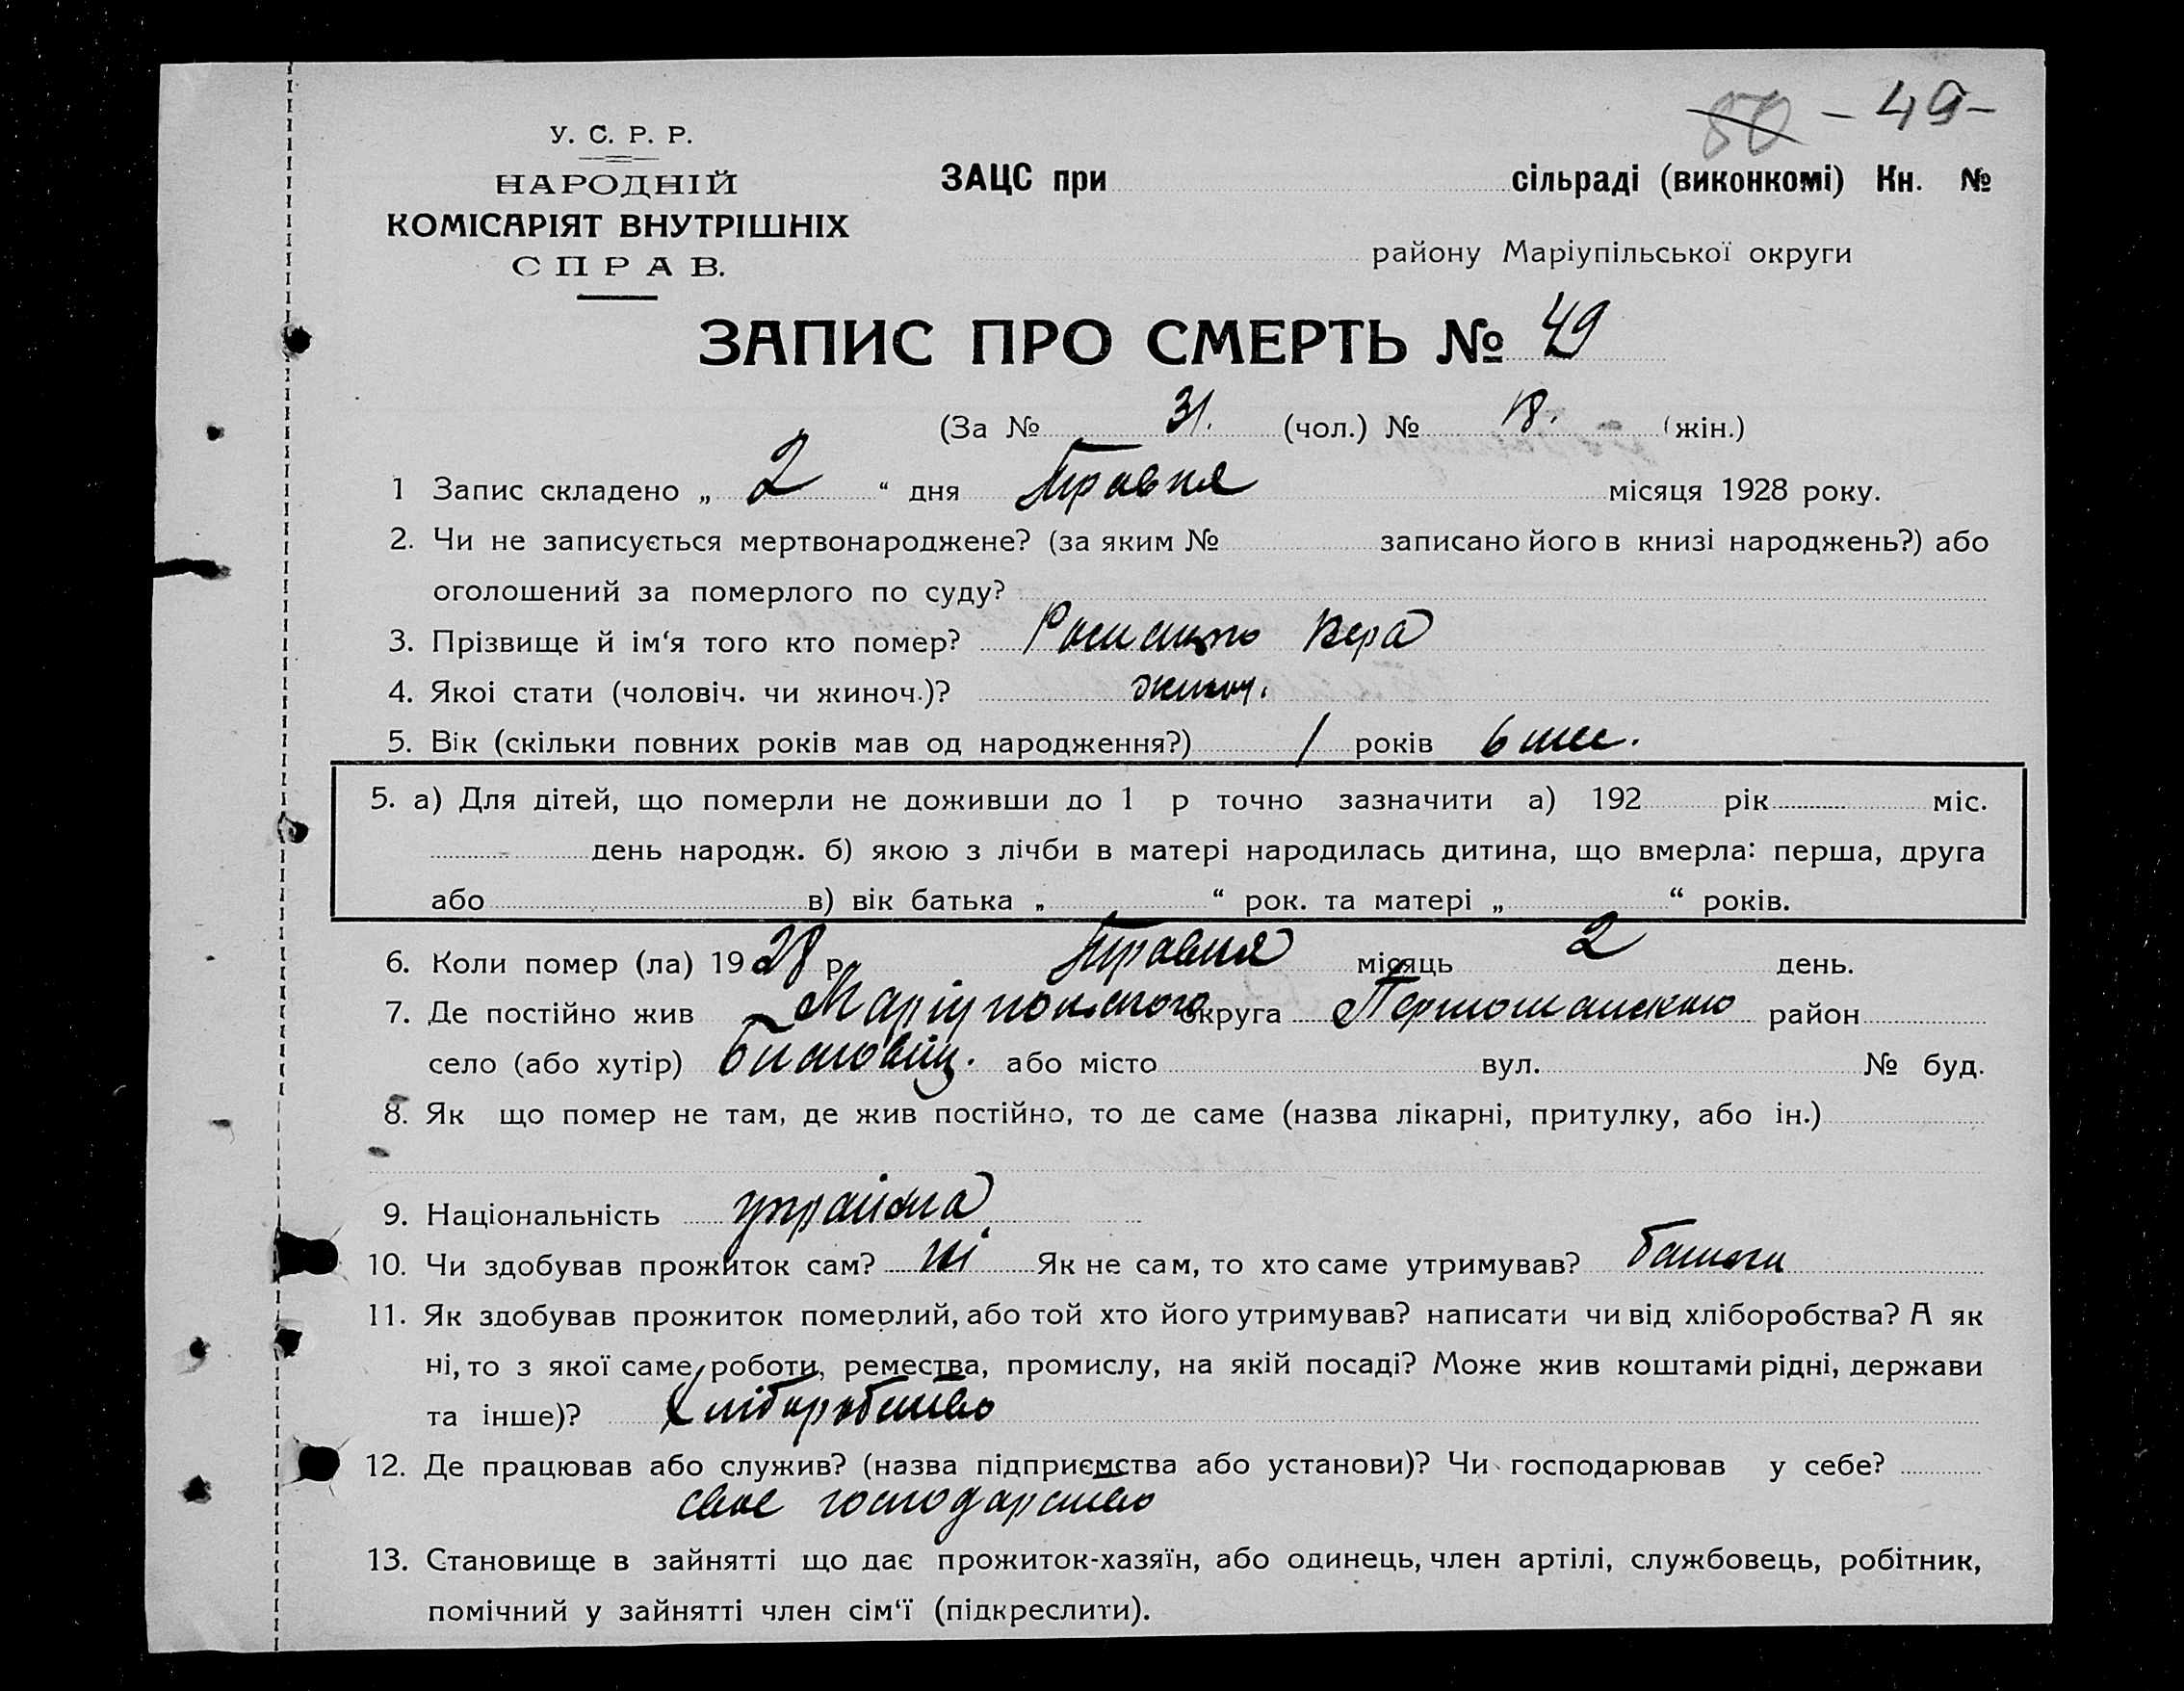 80 - 49 -
У. С. Р. Р.
НАРОДНІЙ
КОМІСАРІЯТ ВНУТРІШНІХ
СПРАВ.
ЗАЦС при сільраді (виконкомі) Кн. №
району Маріупільської округи
ЗАПИС ПРО СМЕРТЬ № 49
(За № 31. (чол.) № 18. (жін.)
1 Запис складено „ 2 “ дня Травня місяця 1928 року.
2. Чи не записується мертвонароджене? (за яким № записано його в книзі народжень?) або
оголошений за померлого по суду?
3. Прізвище й ім‘я того кто помер? Вера
4. Якоі стати (чоловіч. чи жиноч.)? жиноч.
5. Вік (скільки повних років мав од народження?) 1 років 6 мис.
5. а) Для дітей, що померли не доживши до 1 р точно зазначити а) 192 рік міс.
день народж. б) якою з лічби в матері народилась дитина, що вмерла: перша, друга
або в) вік батька „ “ рок. та матері „ “ років.
6. Коли помер (ла) 1928 р Травня місяць 2 день.
7. Де постійно жив округа район
село (або хутір) або місто вул. № буд.
8. Як що помер не там, де жив постійно, то де саме (назва лікарні, притулку, або ін.)
9. Національність
10. Чи здобував прожиток сам? ні Як не сам, то хто саме утримував? батьки
11. Як здобував прожиток померлий, або той хто його утримував? написати чи від хліборобства? А як
ні, то з якої саме роботи, ремества, промислу, на якій посаді? Може жив коштами рідні, держави
та інше)? Хліборобство
12. Де працював або служив? (назва підприємства або установи)? Чи господарював у себе?
своє господарство
13. Становище в зайнятті що дає прожиток-хазяїн, або одинець, член артілі, службовець, робітник,
помічний у зайнятті член сім‘ї (підкреслити).